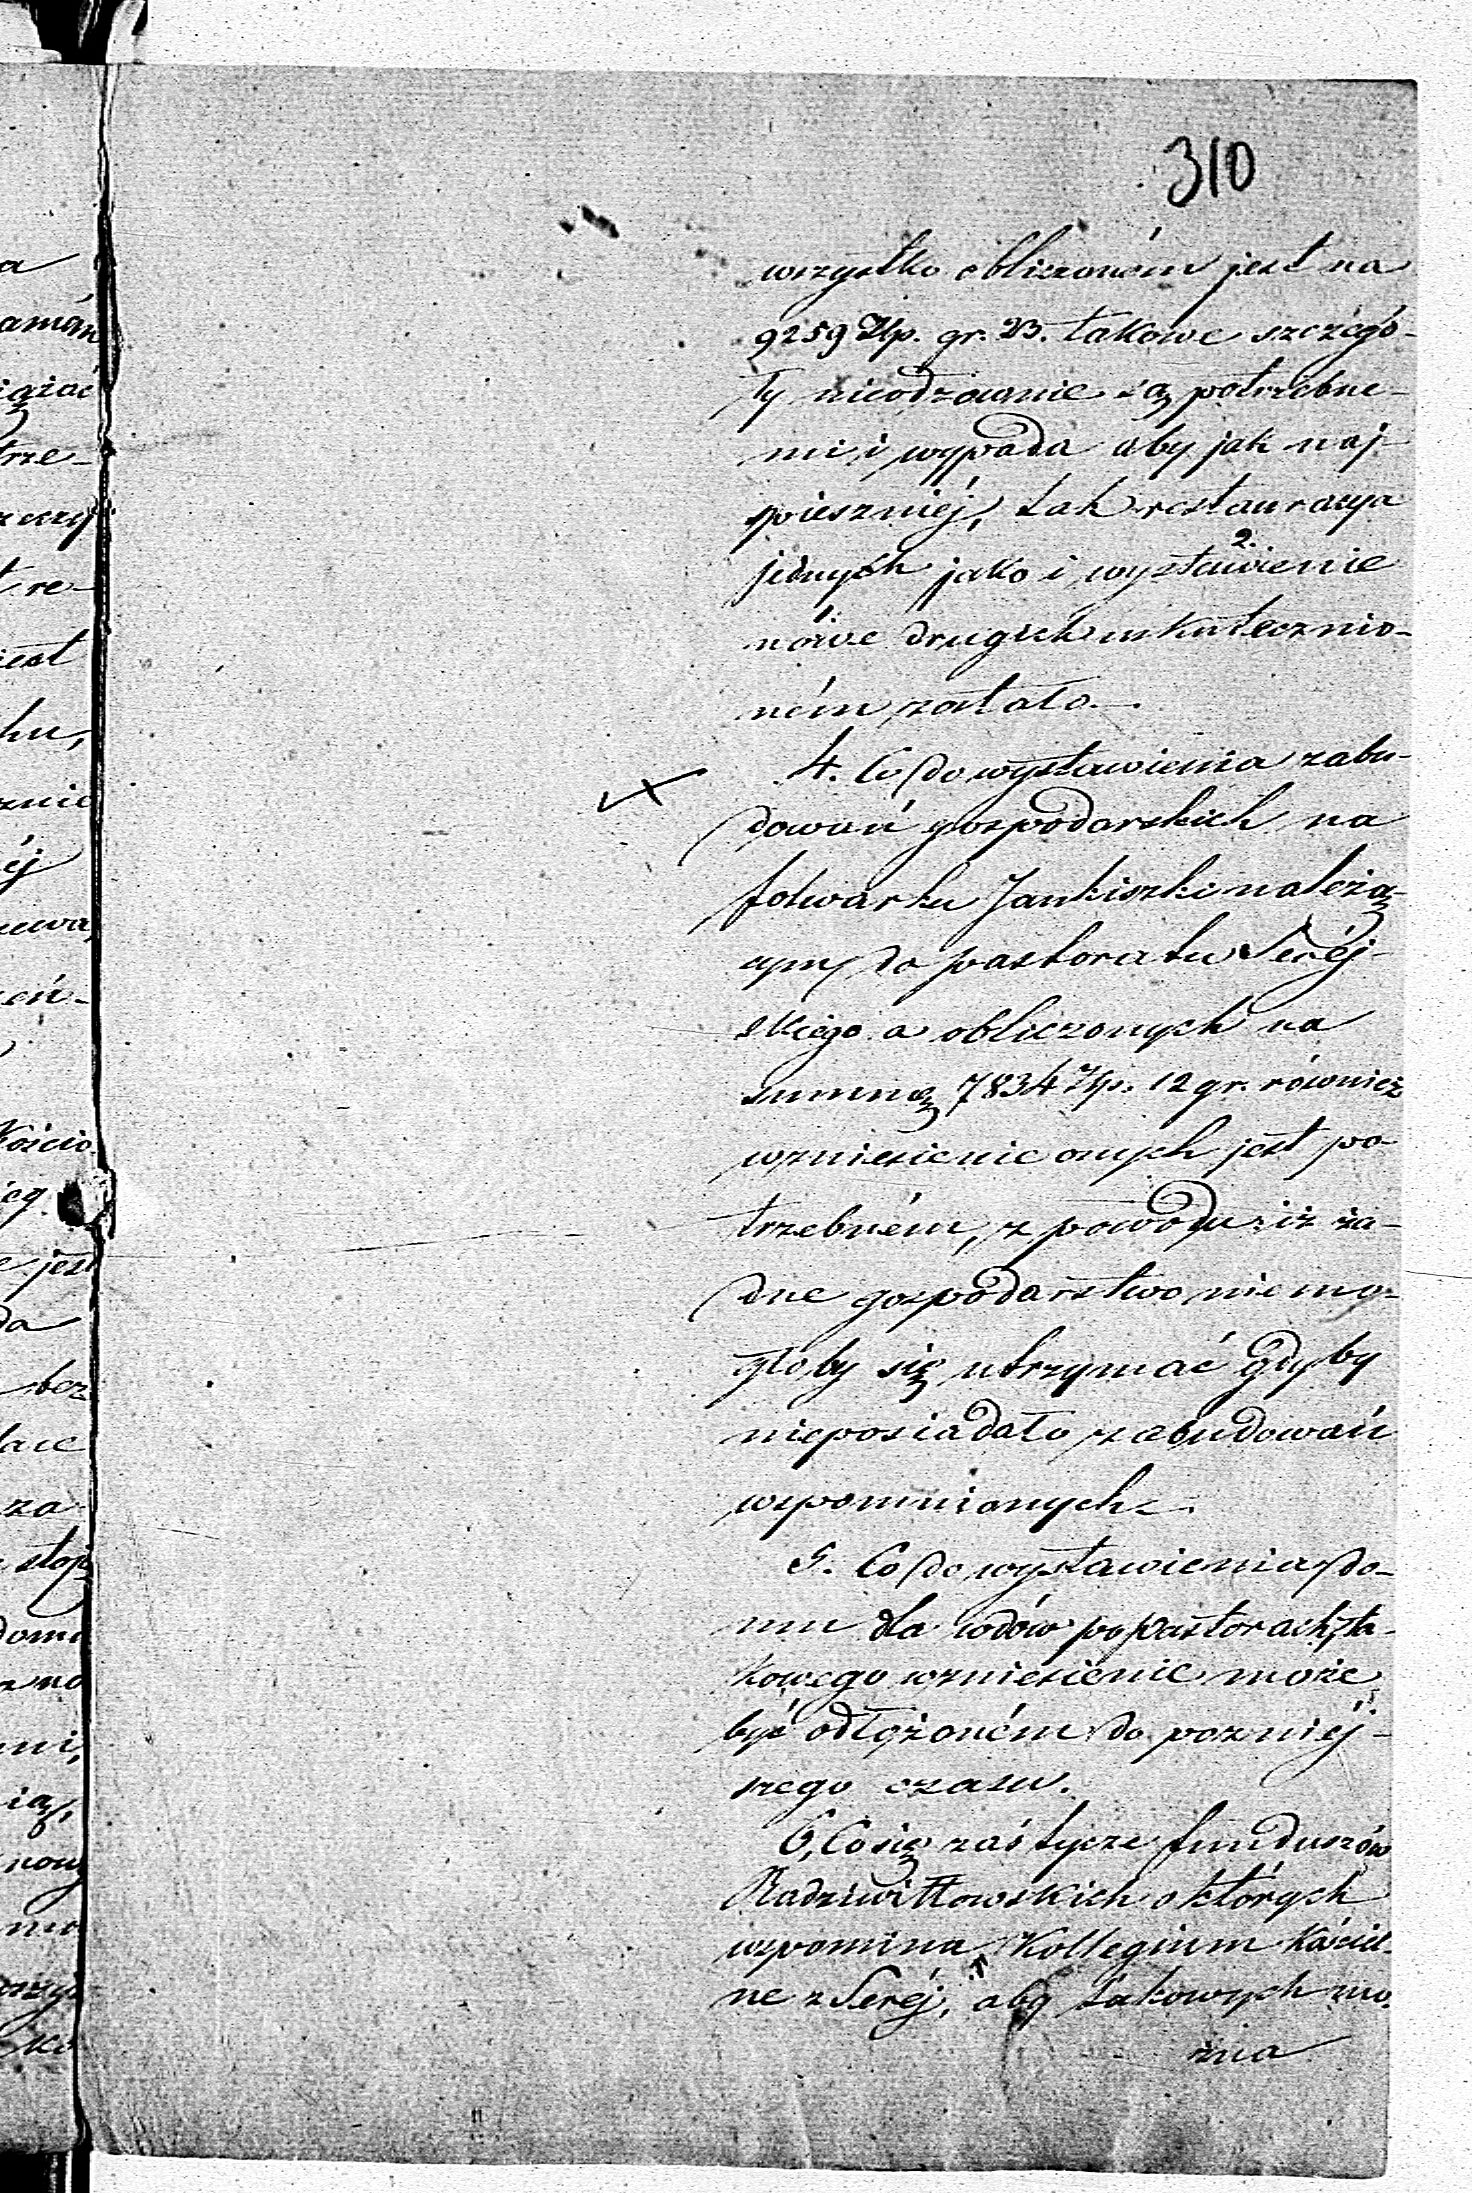 310
wszystko obliczoném jest na
9259 Złp. gr. 23. takowe szczegó-
ły nieodzownie są potrzebne-
mi i wypada aby jak naj-
spieszniéj, tak restauracya
jednych jako i wystawienie
2.
nowe drugich uskutecznio-
ném zostało.—
4. Co do wystawienia zabu-
dowań gospodarskich na
folwarku Jankiszki należą-
cym do pastoratu Seréj-
skiego a obliczonych na
summę 7834 Złp. 12 gr. również
wzniesienie onych jest po-
trzebném, z powodu iż ża-
dne gospodarstwo nie mo-
głoby się utrzymać gdyby
nieposiadało zabudowań
wspomnionych.
5. Co do wystawienia do-
mu dla wdów po pastorach, ta-
kowego wzniesienie może
być odłożoném do pozniéj-
szego czasu.
6, Co się zaś tycze funduszów
Radziwiłłowskich o których
wspomina Kollegium Kościel-
ne z Seréj, aby takowych mo-
żna